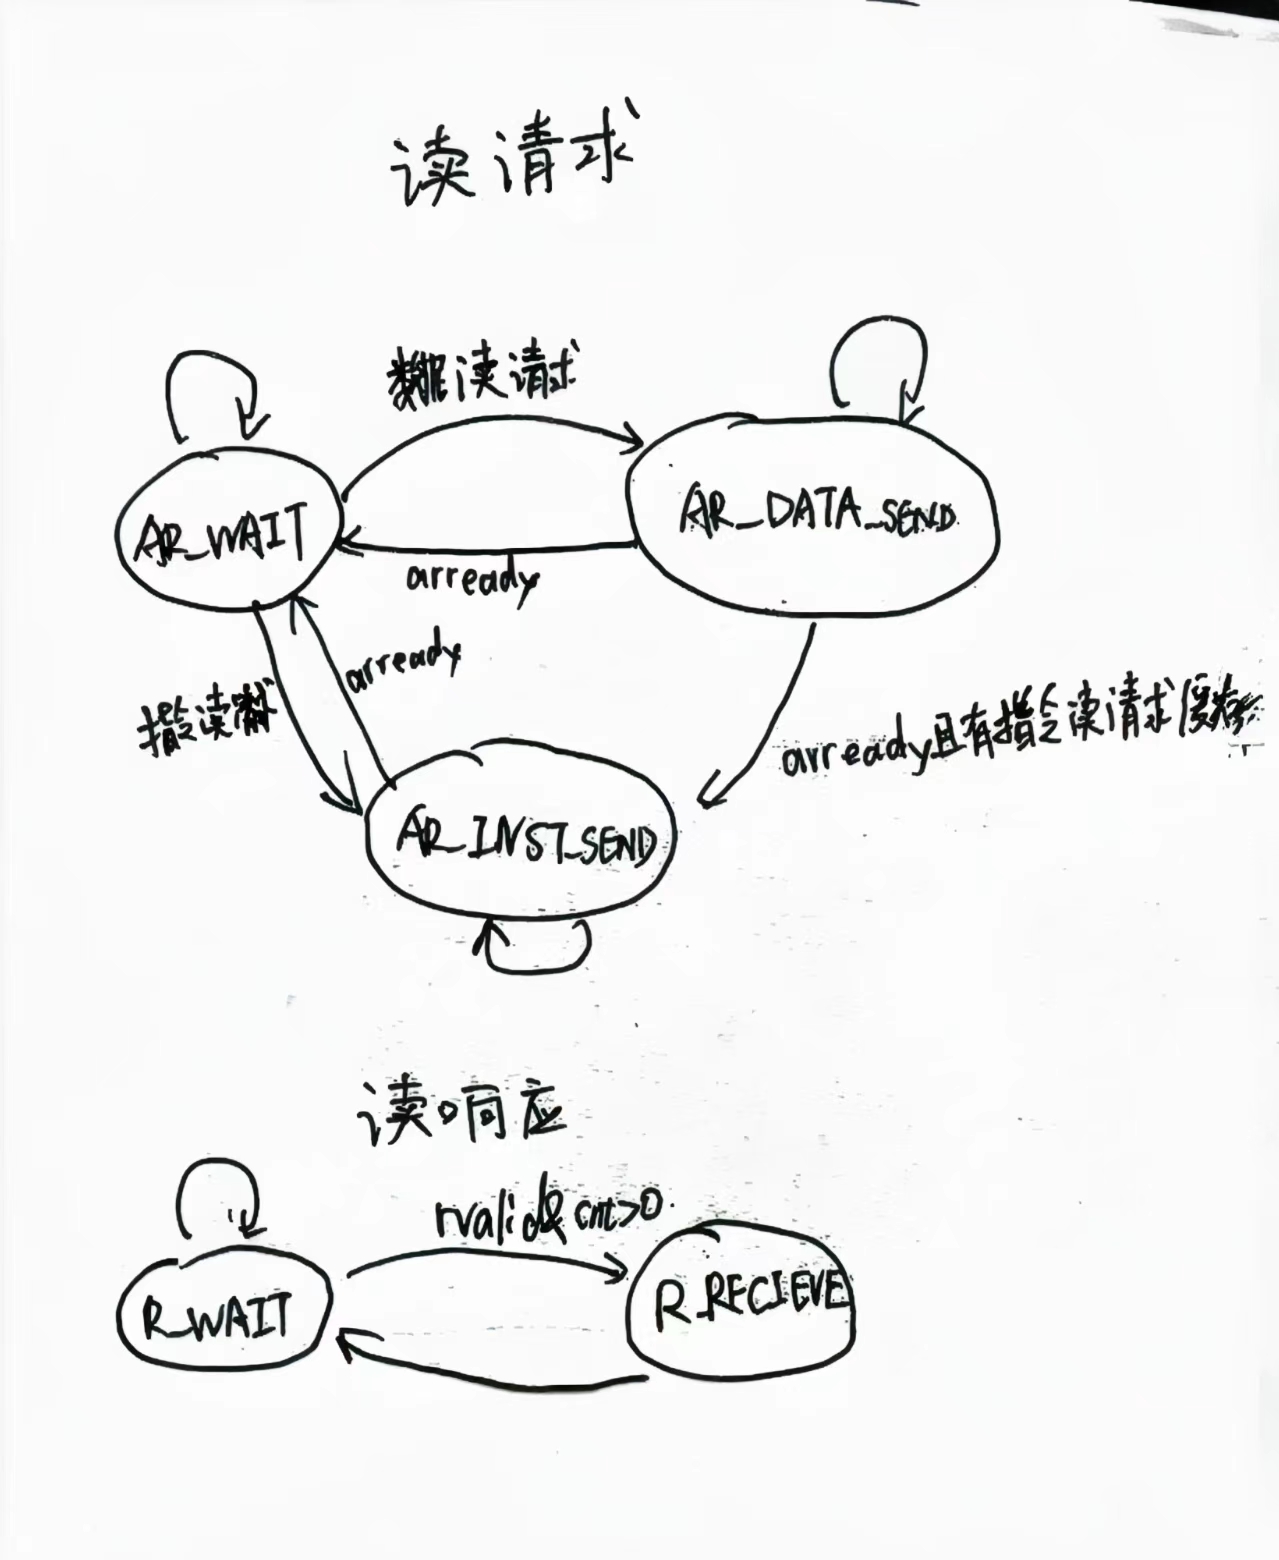 读请求
数据读请求
AR_WAIT
AR_DATA_SEND
arready
arready
指令读请求
arready且有指令读请求缓存
AR_INST_SEND
读响应
rvalid& cnt>0
R_WAIT
R_RECIEVE